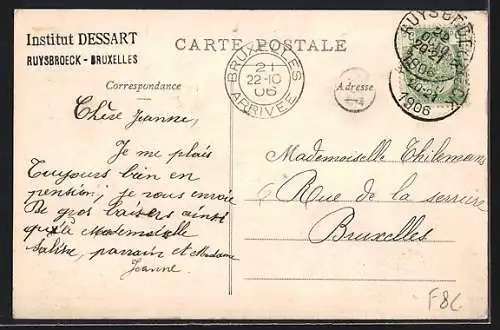 Institut DESSART
RUYSBROECK - BRUXELLES
CARTE POSTALE
BRUXELLES
21
22-10
06
ARRIVÉE
RUYSBROECK
1906
1906
Correspondance
Adresse
Chère Jeanne,
Je me plais
Toujours bien en
pension; je vous envoie
De gros baisers ainsi
qu'à Mademoiselle
parrain et Madame
Jeanne.
Mademoiselle Thilemans
Rue de la serrure
Bruxelles
F8C